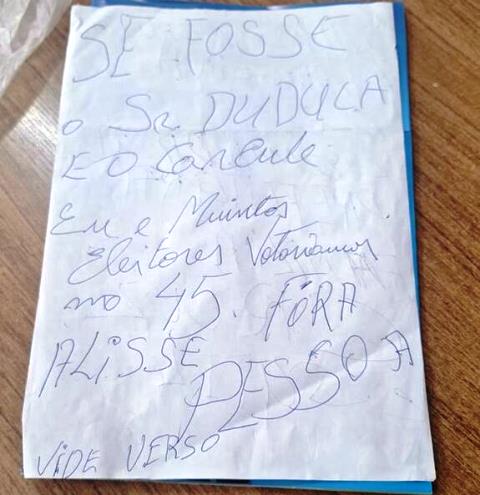 SE FOSSE
o Sr. DUDUCA
E O
Eu e Muintos
Eleitores Votoriamos
no 45. FÓRA
ALISSE
PESSOA
VIDE VERSO